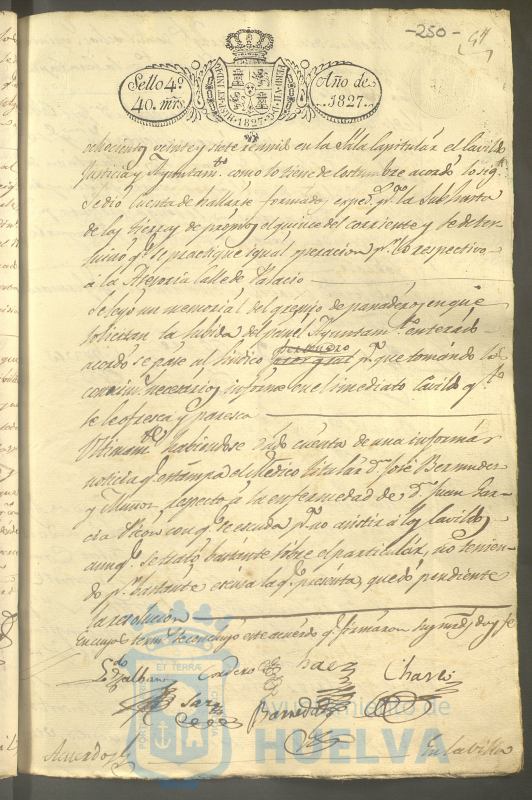 -250-
Sello 4º
40. mrs
HISP. ET IND. R
1827
Año de
1827.
ochocientos veinte y siete reunido en la Sala Capitular el Cavildo
Justicia y Ayuntamto. como lo tiene de costumbre acordó lo sigte.
Se dió cuenta de hallarse formado expedte. pa. la Subhasta
de las tierras de propios el quince del corriente y se deter
minó qe. se practique igual operacion pr. lo respectivo
á la Asesoria calle de Palacio
Se leyó un memorial del gremio de panaderos en que
solicitan la subida del pan el Ayuntamto. enterado
acordó se pase al Sindico personero pa. que tomando los
conocimtos. necesarios informe en el inmediato Cavildo qto.
se le ofresca y paresca
Ultimamte. habiendose dado cuenta de una informár
noticia qe. estampa el Médico titular Dn. José Bermudez
y Muñoz respecto á la enfermedad de Dn. Juan Gar
cia con qe. se escuda pa. no asistir á los Cavildos
aunqe. se trató bastante sobre el particular, no tenien
do pr. bastante escusa la qe. presenta, quedó pendiente
la resolucion
En cuyos termos. se concluyó este acuerdo qe. firmaron sus mrds. doy fe
Ldo.
Cordero
Saez
Chaves
Barreda
Acuerdo
En la villa
PORTUS MARIS ET TERRÆ CUSTODIA
Ayuntamiento de
HUELVA